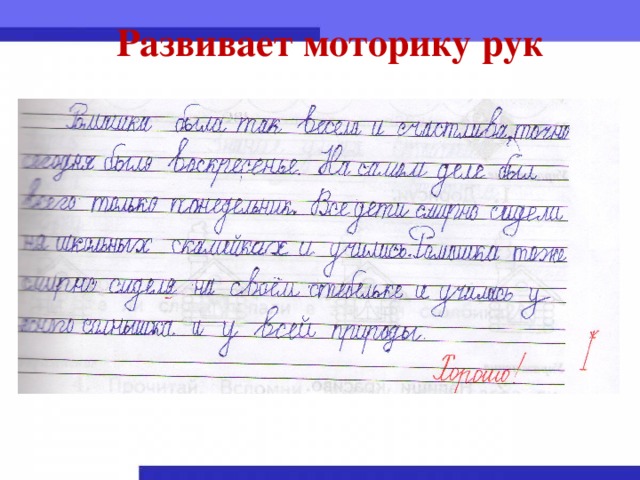 Развивает моторику рук
Ромашка была так весела и счастлива, точно
сегодня было воскресенье. На самом деле был
всего только понедельник. Все дети смирно сидели
на школьных скамейках и учились. Ромашка тоже
смирно сидела на своём стебельке и училась у
ясного солнышка и у всей природы.
Хорошо!
4. Прочитай. Вспомни